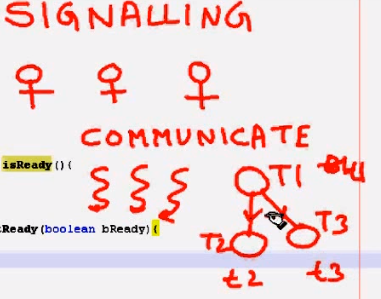 SIGNALLING
COMMUNICATE
isReady(){
T1
Ready(boolean bReady){
T2 T3
t2 t3